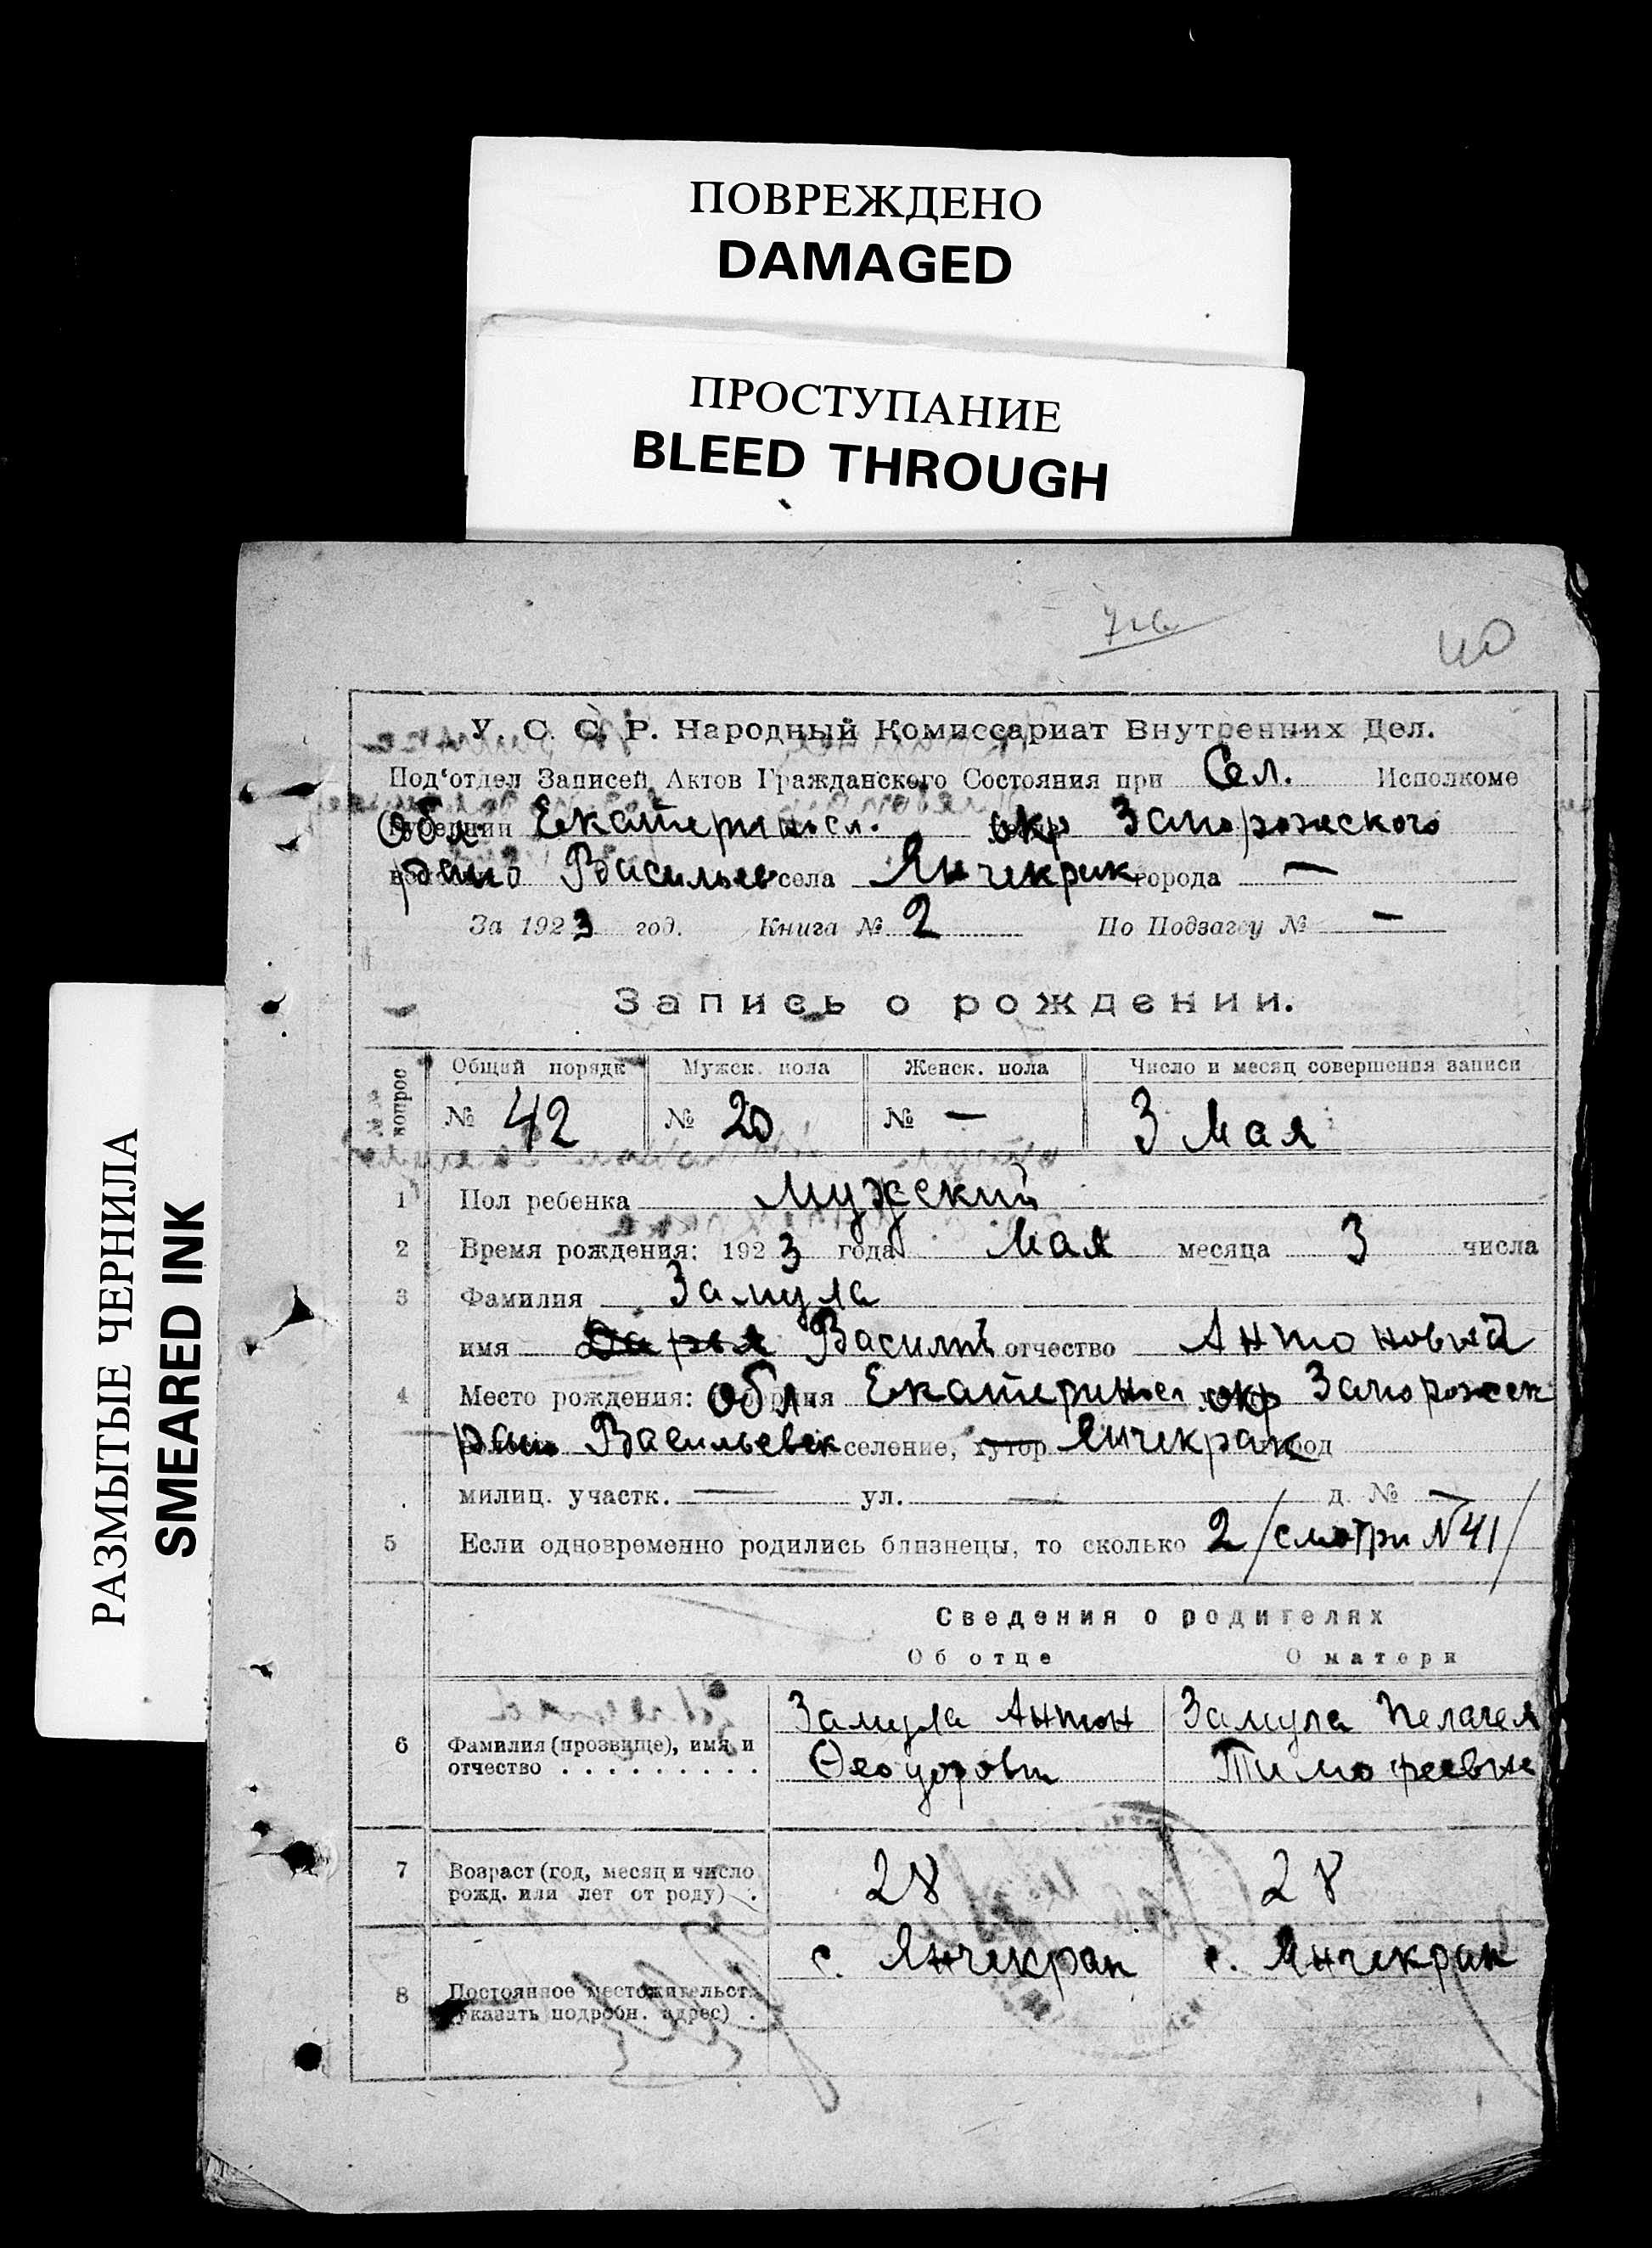 ПОВРЕЖДЕНО
DAMAGED
ПРОСТУПАНИЕ
BLEED THROUGH
РАЗМЫТЫЕ ЧЕРНИЛА
SMEARED INK
40
У. С. С. Р. Народный Комиссариат Внутренних Дел.
Под'отдел Записей Актов Гражданского Состояния при Сел. Исполкоме
Обл Екатериносл. окр Запорожского
Васильев села Янчекрик города —
За 1923 год. Книга № 2 По Подзагсу № —
Запись о рождении.
вопрос Общий порядк Мужск. пола Женск. пола Число и месяц совершения записи
№ 42 № 20 № — 3 Мая
1 Пол ребенка мужский
2 Время рождения: 1923 года Мая месяца 3 числа
3 Фамилия Замула
имя Дарья Василий отчество Антоновий
4 Место рождения: Обл Екатериносл окр Запорожск
раи Васильевск селение, хутор Янчекрак
милиц. участк. — ул. — д. № —
5 Если одновременно родились близнецы, то сколько 2 /смотри №41/
Сведения о родителях
Об отце О матери
6 Фамилия (прозвище), имя и отчество . . . . . . . . .
Замула Антон
Ѳеодорови
Замула Пелагея
Тимофеевна
7 Возраст (год, месяц и число рожд. или лет от роду) .
28 28
8 Постоянное местожительст. (указать подробн. адрес) .
с. Янчекрак с. Янчекрак